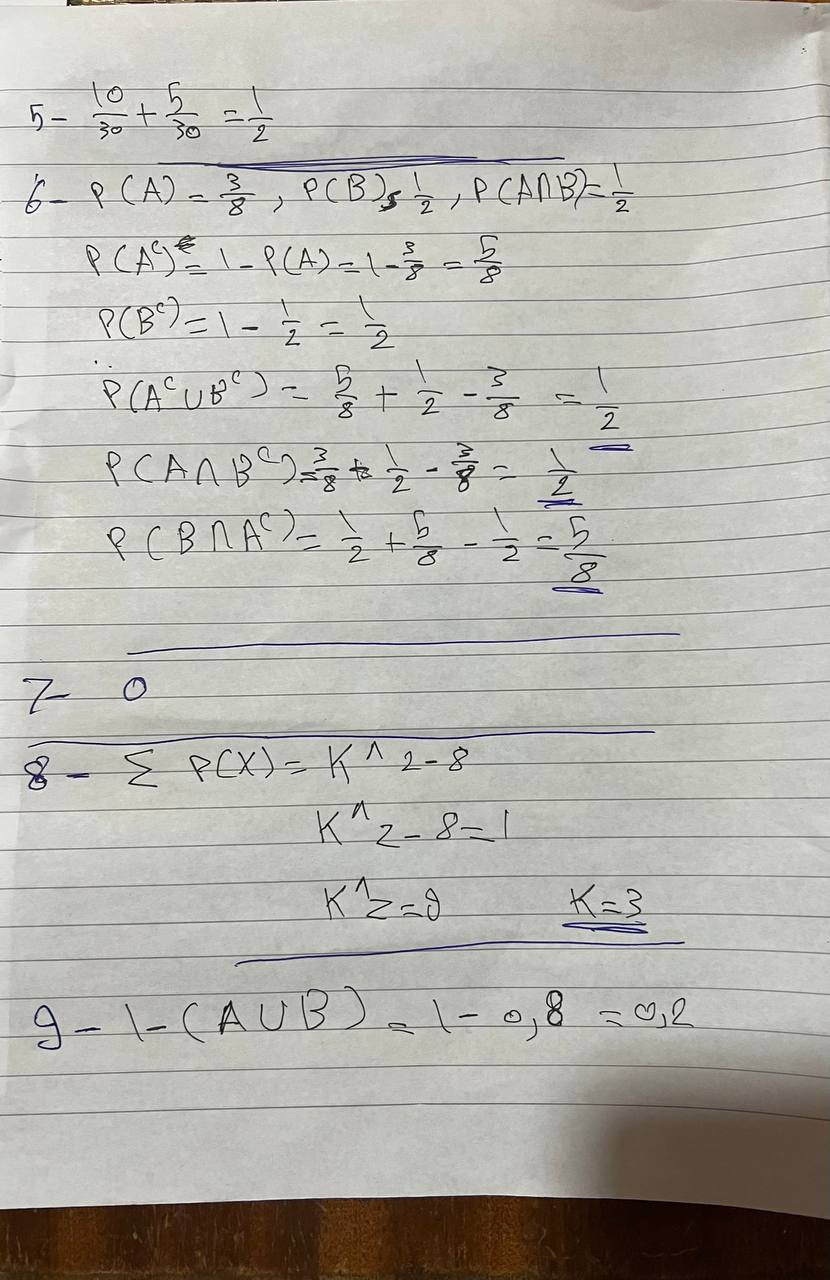 5- 10/30 + 5/30 = 1/2
6- P(A) = 3/8 , P(B) = 1/2 , P(A∩B) = 1/2
P(Aᶜ) = 1-P(A) = 1-3/8 = 5/8
P(Bᶜ) = 1 - 1/2 = 1/2
P(Aᶜ∪Bᶜ) = 5/8 + 1/2 - 3/8 = 1/2
P(A∩Bᶜ) = 3/8 + 1/2 - 3/8 = 1/2
P(B∩Aᶜ) = 1/2 + 5/8 - 1/2 = 5/8
7- 0
8- Σ P(X) = K^2-8
K^2-8=1
K^2=9 K=3
9- 1-(A∪B) = 1-0,8 = 0,2